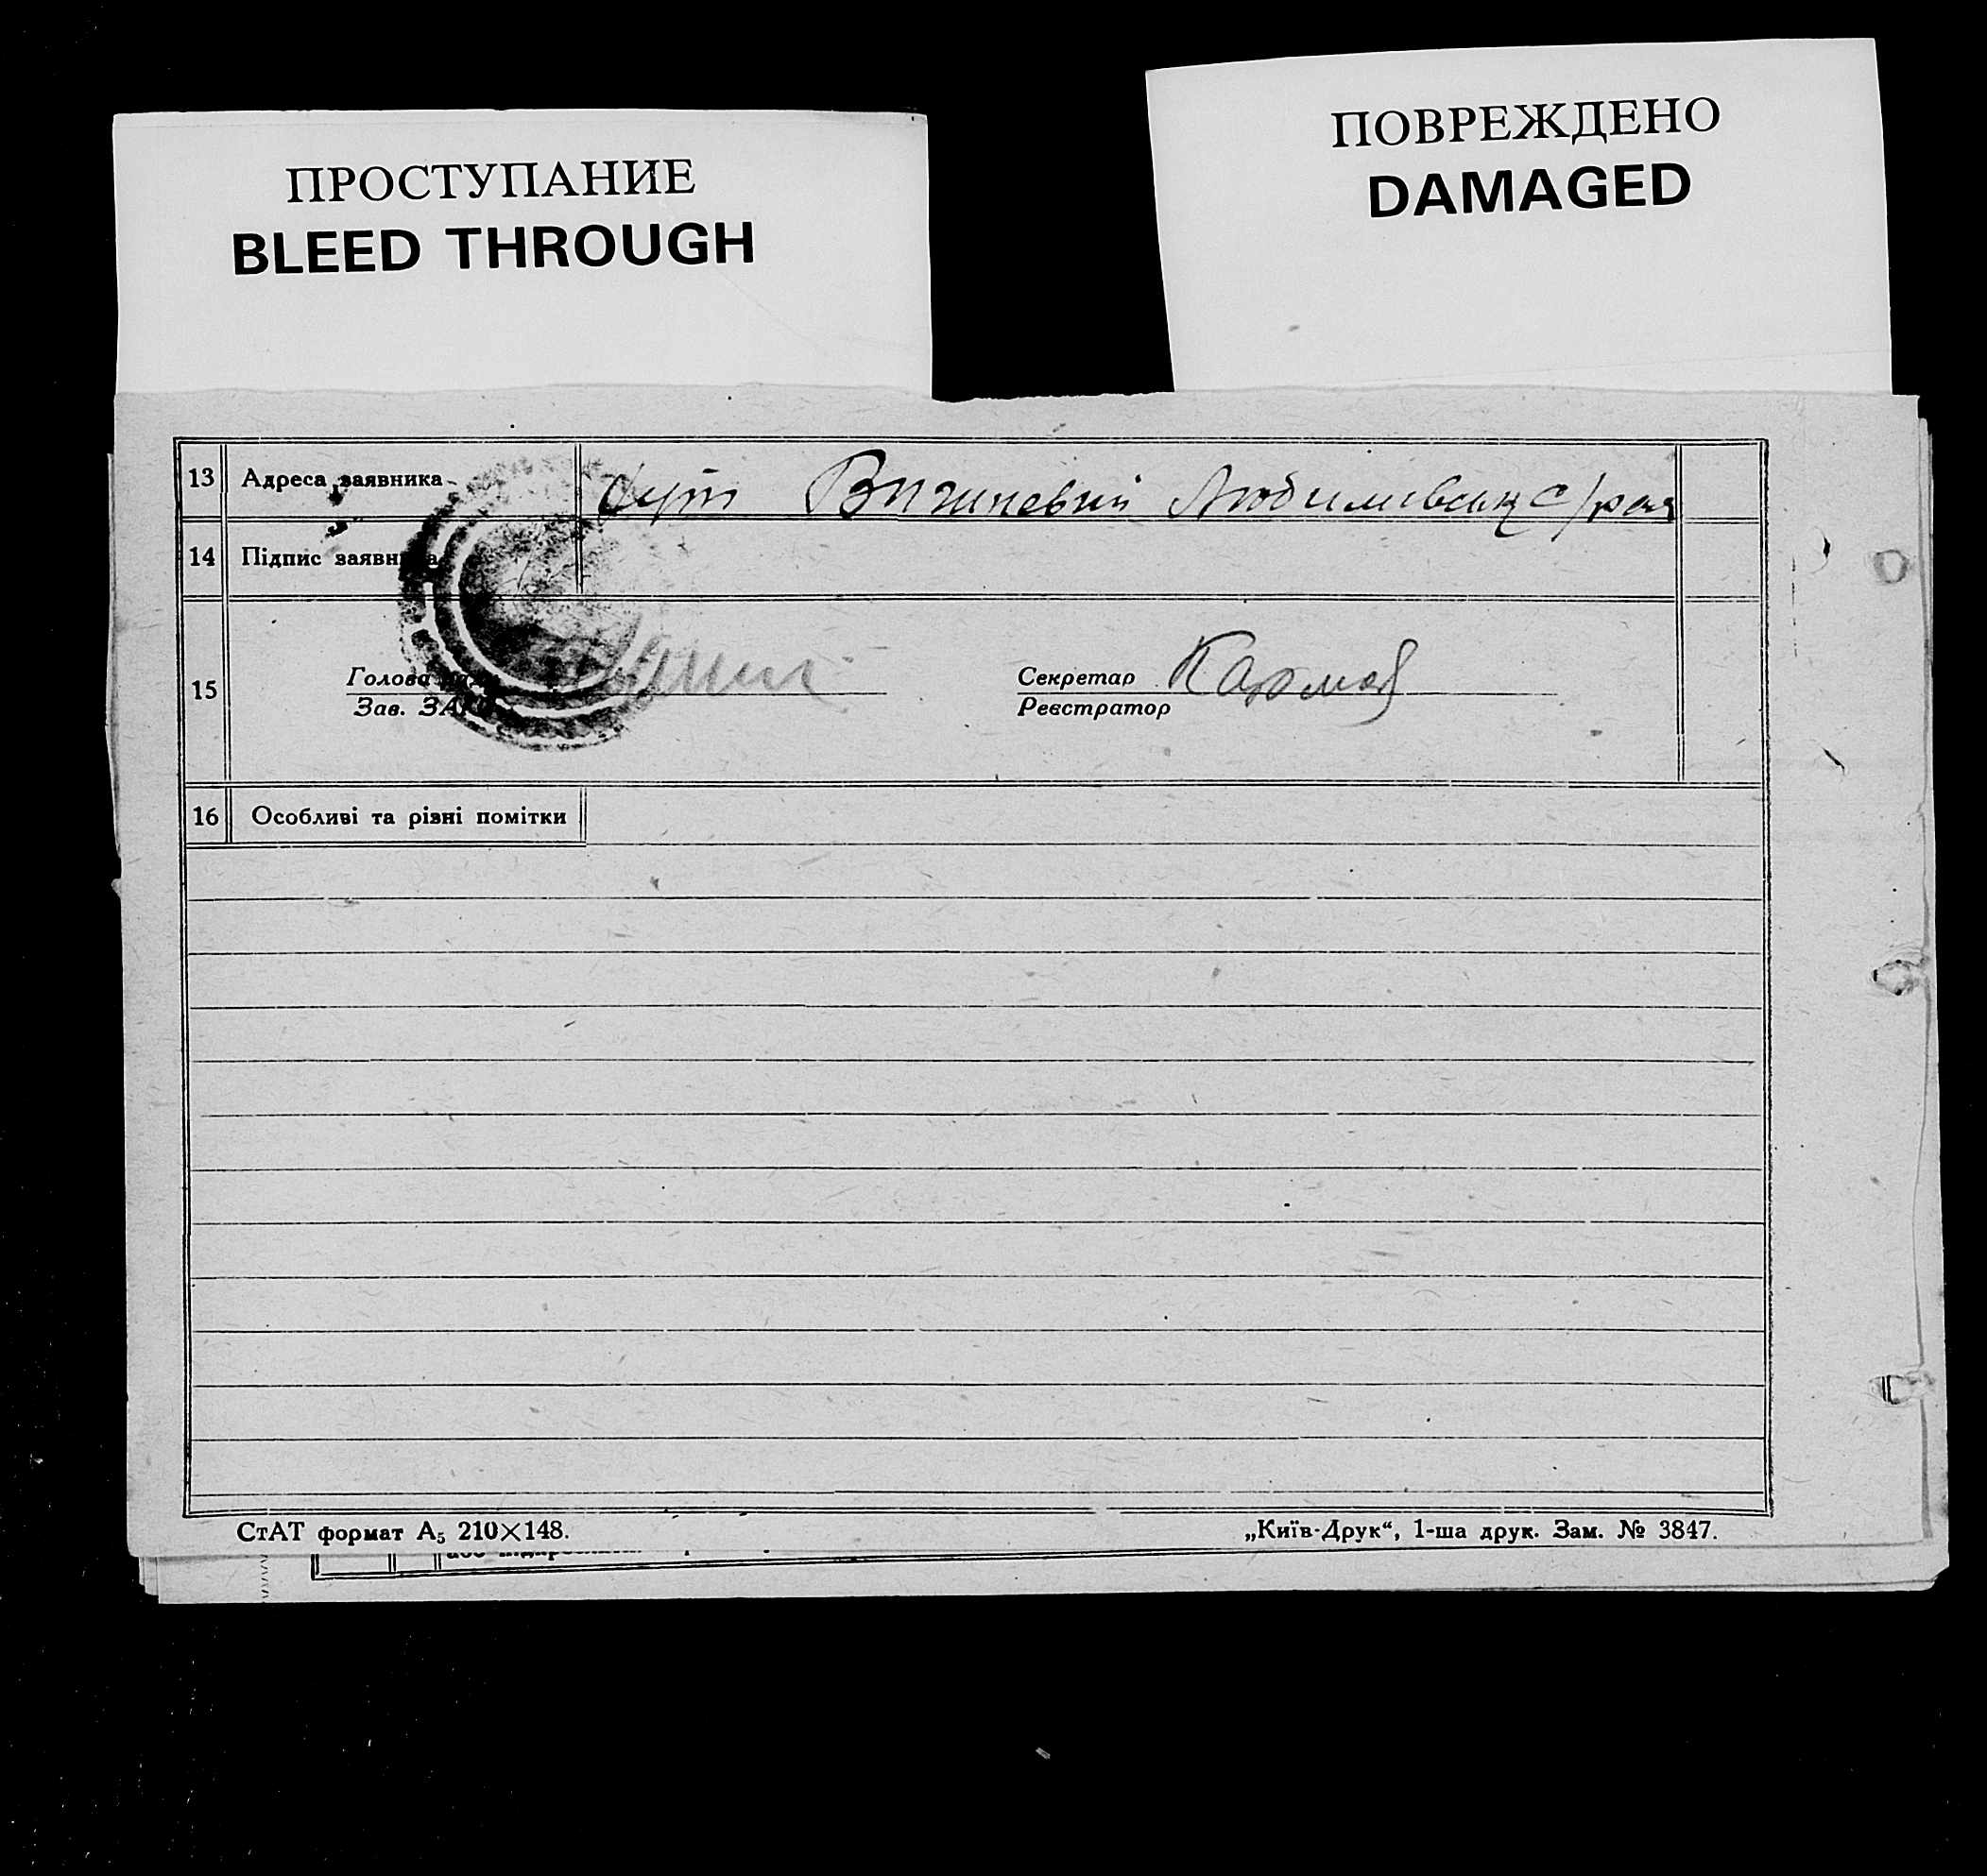 ПРОСТУПАНИЕ
BLEED THROUGH
ПОВРЕЖДЕНО
DAMAGED
13 Адреса заявника Хут
14 Підпис заявника
15
Голова
Зав. ЗАГС
Секретар
Реєстратор
16 Особливі та різні помітки
СтАТ формат А₅ 210×148.
„Київ-Друк“, 1-ша друк. Зам. № 3847.